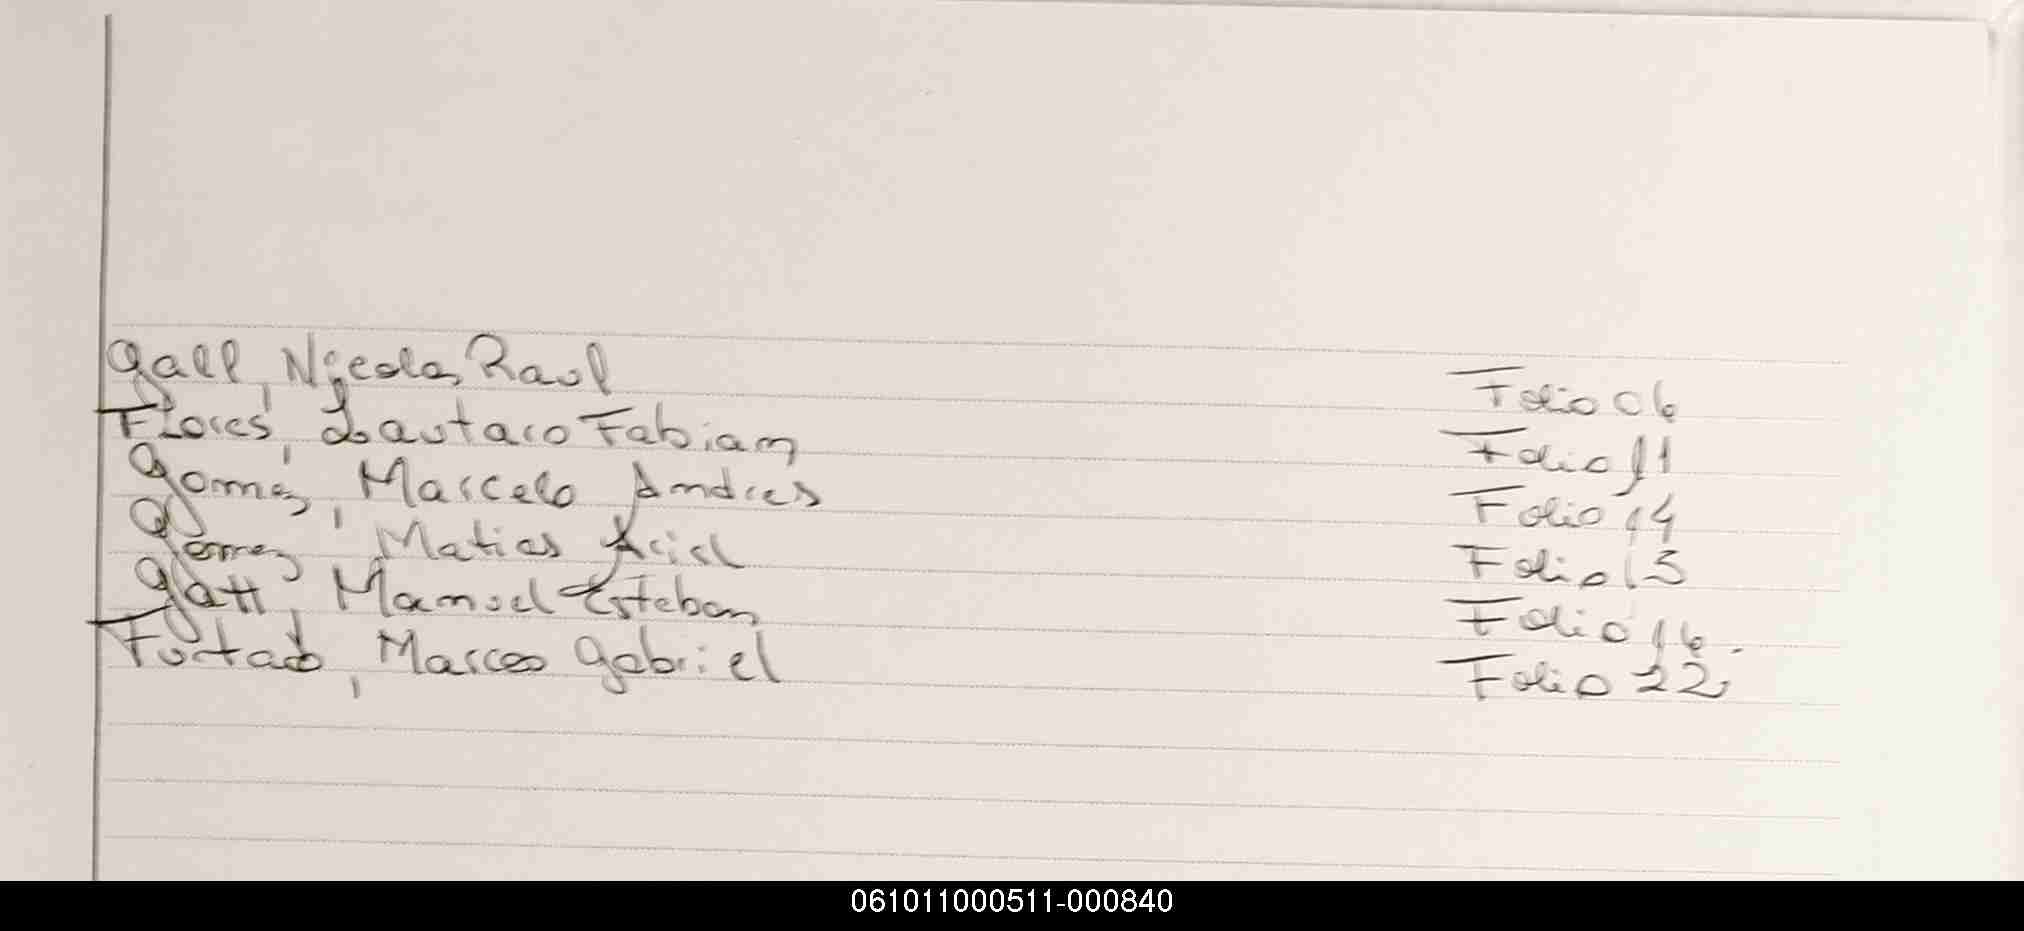 Gall, Nicolas Raul Folio 06
Flores, Lautaro Fabian Folio 11
Gomez, Marcelo Andres Folio 14
Gomez Matias Ariel Folio 15
Gatt, Manuel Esteban Folio 16.
Furtado, Marcos Gabriel Folio 22
061011000511-000840